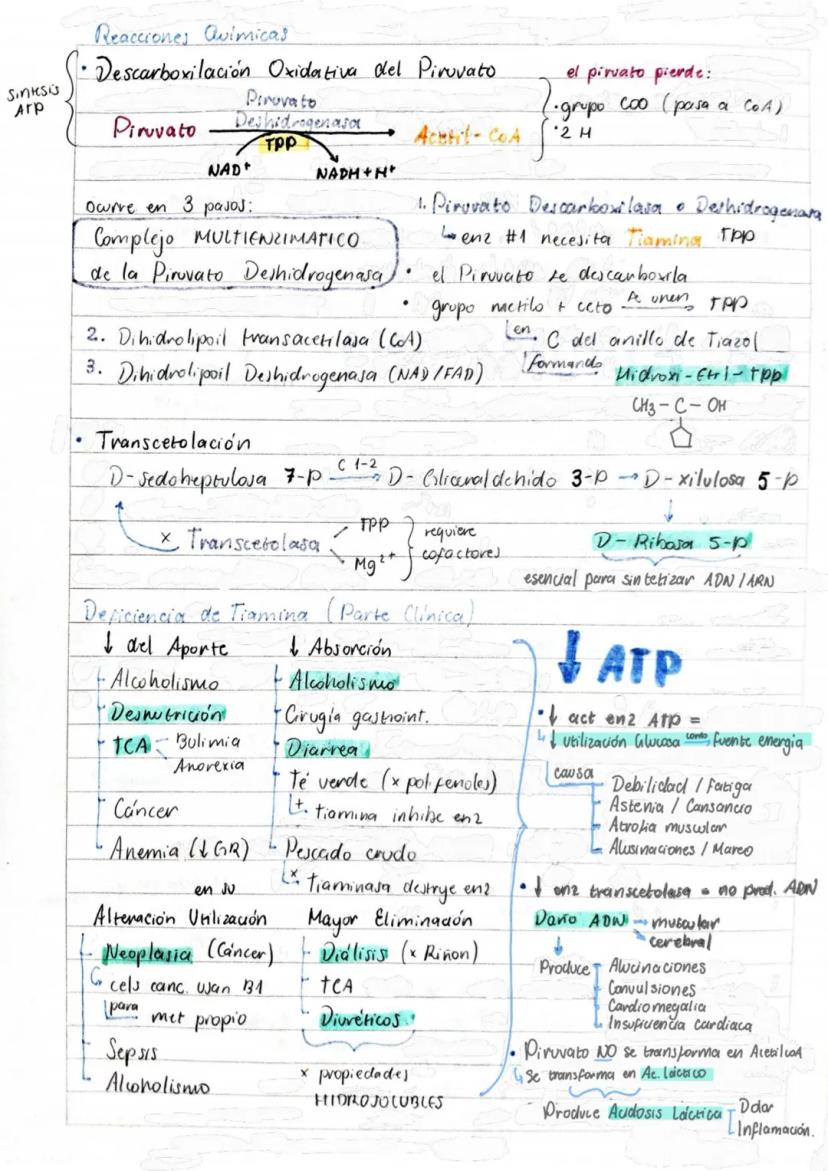 Reacciones Químicas
• Descarboxilación Oxidativa del Piruvato
síntesis ATP
Piruvato
Piruvato Deshidrogenasa
TPP
Acetil-CoA
NAD⁺
NADH + H⁺
el piruvato pierde:
• grupo COO (pasa a CoA)
• 2 H
ocurre en 3 pasos:
Complejo MULTIENZIMATICO
de la Piruvato Deshidrogenasa
1. Piruvato Descarboxilasa o Deshidrogenasa
↳ enz #1 necesita Tiamina TPP
• el Piruvato se descarboxila
• grupo metilo + ceto se unen → TPP
en C del anillo de Tiazol
formando Hidroxi-Etil-TPP
CH3 – C – OH
2. Dihidrolipoil transacetilasa (CoA)
3. Dihidrolipoil Deshidrogenasa (NAD/FAD)
• Transcetolación
D-sedoheptulosa 7-P C 1-2 → D-Gliceraldehido 3-P → D-xilulosa 5-P
x Transcetolasa
TPP
Mg²⁺
requiere
cofactores
D-Ribosa 5-P
esencial para sintetizar ADN/ARN
Deficiencia de Tiamina (Parte Clínica)
↓ del Aporte
Alcoholismo
Desnutrición
TCA
Bulimia
Anorexia
Cáncer
Anemia (↓GR)
↓ Absorción
Alcoholismo
Cirugía gastroint.
Diarrea
Té verde (x polifenoles)
+ tiamina inhibe enz
Pescado crudo
x Tiaminasa destruye enz
en su
Alteración Utilización
Neoplasia (Cáncer)
↳ cels canc. usan B1
para met propio
Sepsis
Alcoholismo
Mayor Eliminación
Diálisis (x Riñon)
TCA
Diuréticos
x propiedades
HIDROSOLUBLES
↓ ATP
• ↓ act enz ATP =
↓ utilización Glucosa como fuente energía
causa
Debilidad / Fatiga
Astenia / Cansancio
Atrofia muscular
Alusinaciones / Mareo
• ↓ enz transcetolasa = no prod. ADN
Daño ADN
muscular
cerebral
Produce
Alucinaciones
Convulsiones
Cardiomegalia
Insuficiencia cardiaca
• Piruvato NO se transforma en AcetilCoA
↳ Se transforma en Ac. láctico
Produce Acidosis Láctica
Dolor
Inflamación.